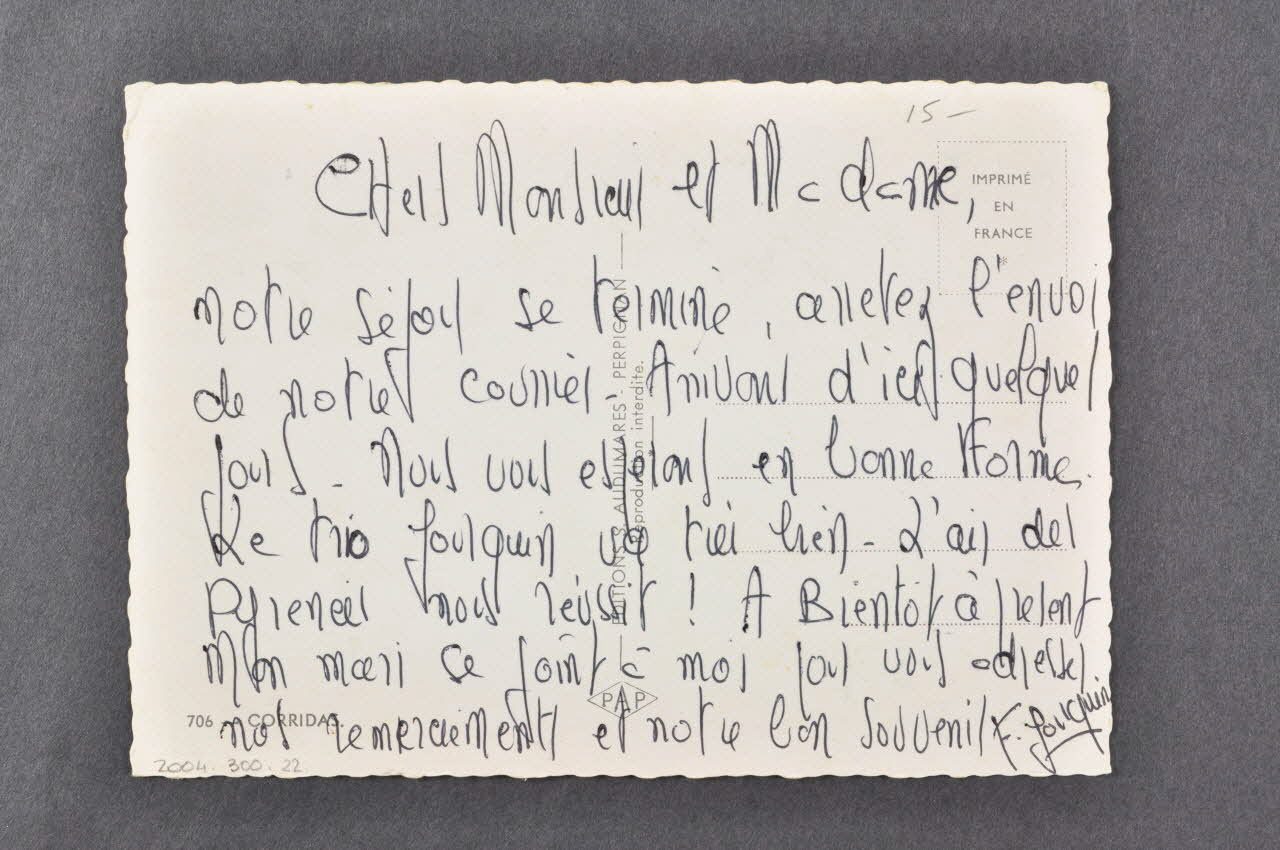 15-
Chers Monsieur et Madame,
IMPRIMÉ
EN
FRANCE
*
notre séjour se termine, arretez l'envoi
de notre courrier. Arrivons d'ici quelques
jours - Nous vous espérons en bonne Forme.
Le trio Fouquin va très bien - L'air des
Pyrenees nous réussit ! A Bientôt à present
Mon mari se joint à moi pour vous adresser
nos remerciements et notre bon Souvenir F. Fouquin
EDITIONS S. AUDUMARES - PERPIGNAN
Reproduction interdite.
PAP
706 - CORRIDAS.
2004.300.22